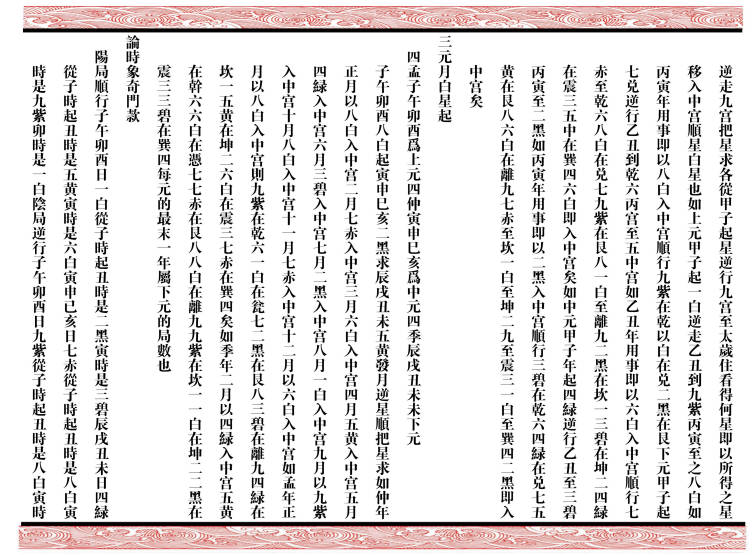 逆走九宮把星求各從甲子起星逆行九宮至太歲住看得何星即以所得之星
移入中宮順星白星也如上元甲子起一白逆走乙丑到九紫丙寅至之八白如
丙寅年用事即以八白入中宮順行九紫在乾以白在兌二黑在艮下元甲子起
七兌逆行乙丑到乾六丙宮至五中宮如乙丑年用事即以六白入中宮順行七
赤至乾六八白在兌七九紫在艮八一白至離九二黑在坎一三碧在坤二四綠
在震三五中在巽四六白即入中宮矣如中元甲子年起四綠逆行乙丑至三碧
丙寅至二黑如丙寅年用事即以二黑入中宮順行三碧在乾六四綠在兌七五
黃在艮八六白在離九七赤至坎一白至坤二九至震三一白至巽四二黑即入
中宮矣
三元月白星起
四孟子午卯酉爲上元四仲寅申巳亥爲中元四季辰戌丑未未下元
子午卯酉八白起寅申巳亥二黑求辰戌丑未五黃發月逆星順把星求如仲年
正月以八白入中宮二月七赤入中宮三月六白入中宮四月五黃入中宮五月
四綠入中宮六月三碧入中宮七月二黑入中宮八月一白入中宮九月以九紫
入中宮十月八白入中宮十一月七赤入中宮十二月以六白入中宮如孟年正
月以八白入中宮則九紫在乾六一白在兌七二黑在艮八三碧在離九四綠在
坎一五黃在坤二六白在震三七赤在巽四矣如季年二月以四綠入中宮五黃
在幹六六白在憑七七赤在艮八八白在離九九紫在坎一一白在坤二二黑在
震三三碧在巽四每元的最末一年屬下元的局數也
論時象奇門款
陽局順行子午卯酉日一白從子時起丑時是二黑寅時是三碧辰戌丑未日四綠
從子時起丑時是五黃寅時是六白寅申巳亥日七赤從子時起丑時是八白寅
時是九紫卯時是一白陰局逆行子午卯酉日九紫從子時起丑時是八白寅時